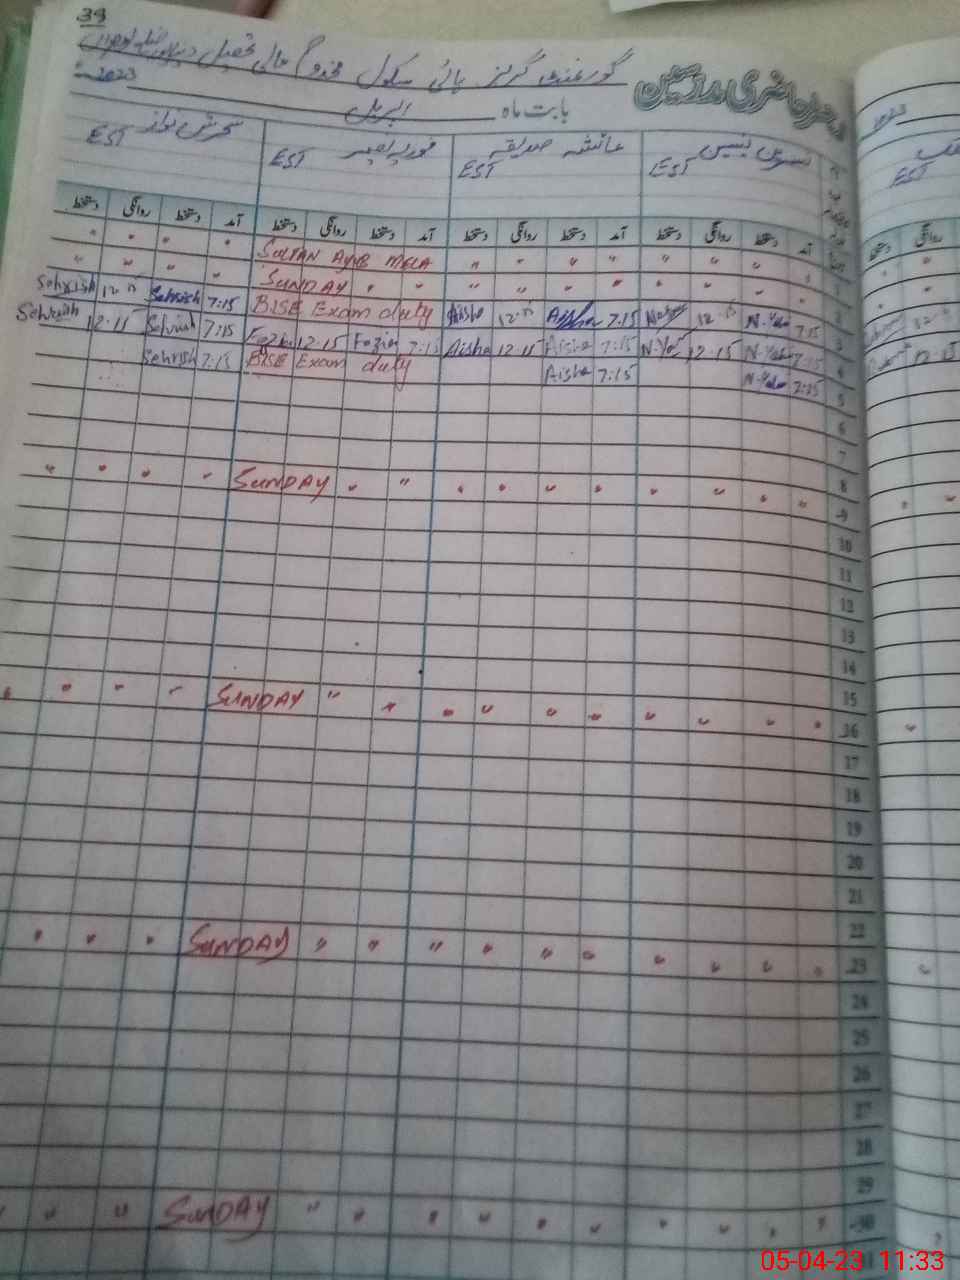 39
گورنمنٹ گرلز ہائی سکول مخدوم عالی تحصیل دنیاپور ضلع لودھراں
بابت ماہ اپریل 2023
نسرین EST عائشہ صدیقہ EST فوزیہ EST سحرش نواز EST
آمد دستخط روانگی دستخط آمد دستخط روانگی دستخط آمد دستخط روانگی دستخط آمد دستخط روانگی دستخط
1 " " " " " " " " SULTAN AYUB MELA " " " "
2 " " " " " " " " SUNDAY " " " " " "
3 7:15 N. 12:15 7:15 Aisha 12:15 Aisha BISE Exam duty 7:15 Sehrish 12:15 Sehrish
4 7:15 N. 12:15 7:15 Aisha 12:15 Aisha 7:15 Fozia 12:15 Fozia 7:15 Sehrish 12:15 Sehrish
5 7:15 N. 7:15 Aisha BISE Exam duty 7:15 Sehrish
6
7
8
9 " " " " " " " " SUNDAY " " " " " "
10
11
12
13
14
15
16 " " " " " " " " SUNDAY " " " " " "
17
18
19
20
21
22
23 " " " " " " " " SUNDAY " " " " " "
24
25
26
27
28
29
30 " " " " " " " " SUNDAY " " " " "
31
2023
EST
05-04-23 11:33